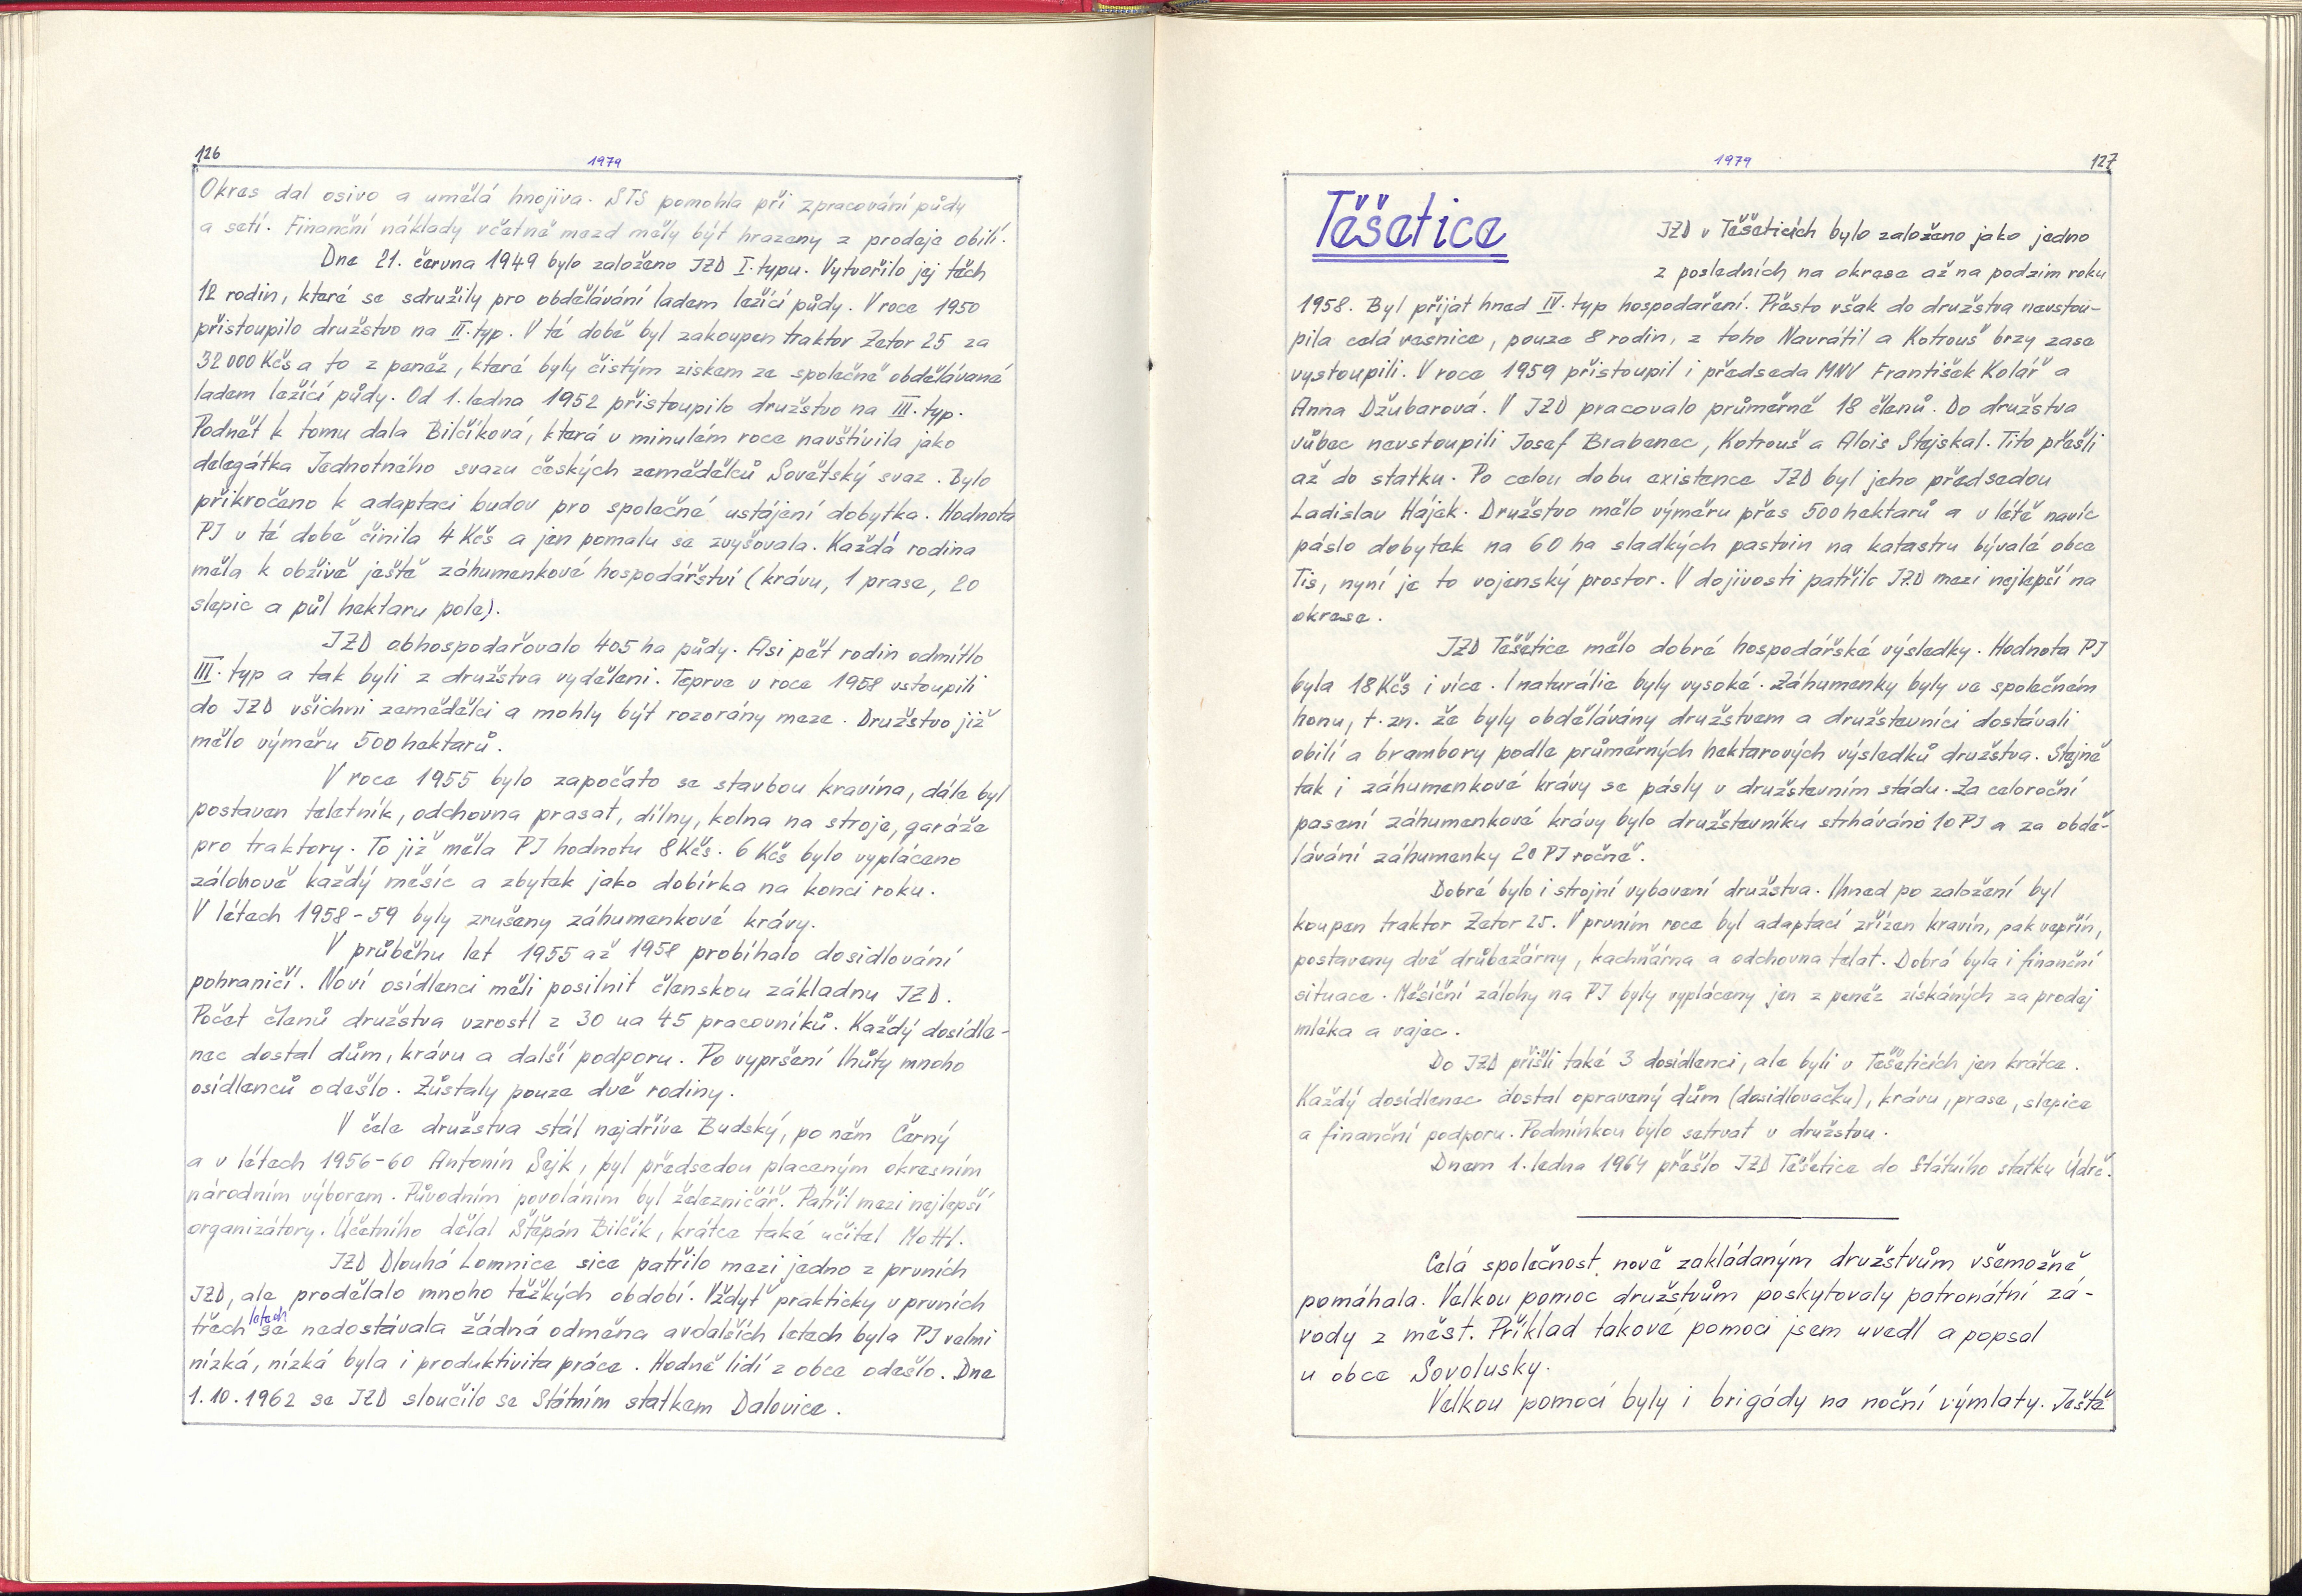 126
1979
Okres dal osivo a umělá hnojiva. STS pomohla při zpracování půdy
a setí. Finanční náklady včetně mezd měly být hrazeny z prodeje obilí.
Dne 21. června 1949 bylo založeno JZD I. typu. Vytvořilo jej těch
12 rodin, které se sdružily pro obdělávání ladem ležící půdy. V roce 1950
přistoupilo družstvo na II. typ. V té době byl zakoupen traktor Zetor 25 za
32 000 Kčs a to z peněz, které byly čistým ziskem ze společně obdělávané
ladem ležící půdy. Od 1. ledna 1952 přistoupilo družstvo na III. typ.
Podnět k tomu dala Bilčíková, která v minulém roce navštívila jako
delegátka Jednotného svazu českých zemědělců Sovětský svaz. Bylo
přikročeno k adaptaci budov pro společné ustájení dobytka. Hodnota
PJ v té době činila 4 Kčs a jen pomalu se zvyšovala. Každá rodina
měla k obživě ještě záhumenkové hospodářství (krávu, 1 prase, 20
slepic a půl hektaru pole).
JZD obhospodařovalo 405 ha půdy. Asi pět rodin odmítlo
III. typ a tak byli z družstva vyděleni. Teprve v roce 1958 vstoupili
do JZD všichni zemědělci a mohly být rozorány meze. Družstvo již
mělo výměru 500 hektarů.
V roce 1955 bylo započato se stavbou kravína, dále byl
postaven teletník, odchovna prasat, dílny, kolna na stroje, garáže
pro traktory. To již měla PJ hodnotu 8 Kčs. 6 Kčs bylo vypláceno
zálohově každý měsíc a zbytek jako dobírka na konci roku.
V létech 1958-59 byly zrušeny záhumenkové krávy.
V průběhu let 1955 až 1958 probíhalo dosidlování
pohraničí. Noví osídlenci měli posilnit členskou základnu JZD.
Počet členů družstva vzrostl z 30 na 45 pracovníků. Každý dosídle-
nec dostal dům, krávu a další podporu. Po vypršení lhůty mnoho
osídlenců odešlo. Zůstaly pouze dvě rodiny.
V čele družstva stál nejdříve Budský, po něm Černý
a v létech 1956-60 Antonín Sejk, byl předsedou placeným okresním
národním výborem. Původním povoláním byl železničář. Patřil mezi nejlepší
organizátory. Účetního dělal Štěpán Bilčík, krátce také učitel Mottl.
JZD Dlouhá Lomnice sice patřilo mezi jedno z prvních
JZD, ale prodělalo mnoho těžkých období. Vždyť prakticky v prvních
třech letech se nedostávala žádná odměna a v dalších letech byla PJ velmi
nízká, nízká byla i produktivita práce. Hodně lidí z obce odešlo. Dne
1.10.1962 se JZD sloučilo se Státním statkem Dalovice.
1979
127
Těšetice
JZD v Těšeticích bylo založeno jako jedno
z posledních na okrese až na podzim roku
1958. Byl přijat hned IV. typ hospodaření. Přesto však do družstva nevstou-
pila celá vesnice, pouze 8 rodin, z toho Navrátil a Kotrouš brzy zase
vystoupili. V roce 1959 přistoupil i předseda MNV František Kolář a
Anna Džubarová. V JZD pracovalo průměrně 18 členů. Do družstva
vůbec nevstoupili Josef Brabenec, Kotrouš a Alois Stejskal. Tito přešli
až do statku. Po celou dobu existence JZD byl jeho předsedou
Ladislav Hájek. Družstvo mělo výměru přes 500 hektarů a v létě navíc
páslo dobytek na 60 ha sladkých pastvin na katastru bývalé obce
Tis, nyní je to vojenský prostor. V dojivosti patřilo JZD mezi nejlepší na
okrese.
JZD Těšetice mělo dobré hospodářské výsledky. Hodnota PJ
byla 18 Kčs i více. I naturálie byly vysoké. Záhumenky byly ve společném
honu, t. zn. že byly obdělávány družstvem a družstevníci dostávali
obilí a brambory podle průměrných hektarových výsledků družstva. Stejně
tak i záhumenkové krávy se pásly v družstevním stádu. Za celoroční
pasení záhumenkové krávy bylo družstevníku strháváno 10 PJ a za obdě-
lávání záhumenky 20 PJ ročně.
Dobré bylo i strojní vybavení družstva. Ihned po založení byl
koupen traktor Zetor 25. V prvním roce byl adaptací zřízen kravín, pak vepřín,
postaveny dvě drůbežárny, kachnárna a odchovna telat. Dobrá byla i finanční
situace. Měsíční zálohy na PJ byly vypláceny jen z peněz získáných za prodej
mléka a vajec.
Do JZD přišli také 3 dosídlenci, ale byli v Těšeticích jen krátce.
Každý dosídlenec dostal opravený dům (dosidlovačku), krávu, prase, slepice
a finanční podporu. Podmínkou bylo setrvat v družstvu.
Dnem 1. ledna 1964 přešlo JZD Těšetice do Státního statku Údrč.
Celá společnost nově zakládaným družstvům všemožně
pomáhala. Velkou pomoc družstvům poskytovaly patronátní zá-
vody z měst. Příklad takové pomoci jsem uvedl a popsal
u obce Sovolusky.
Velkou pomocí byly i brigády na noční výmlaty. Ještě